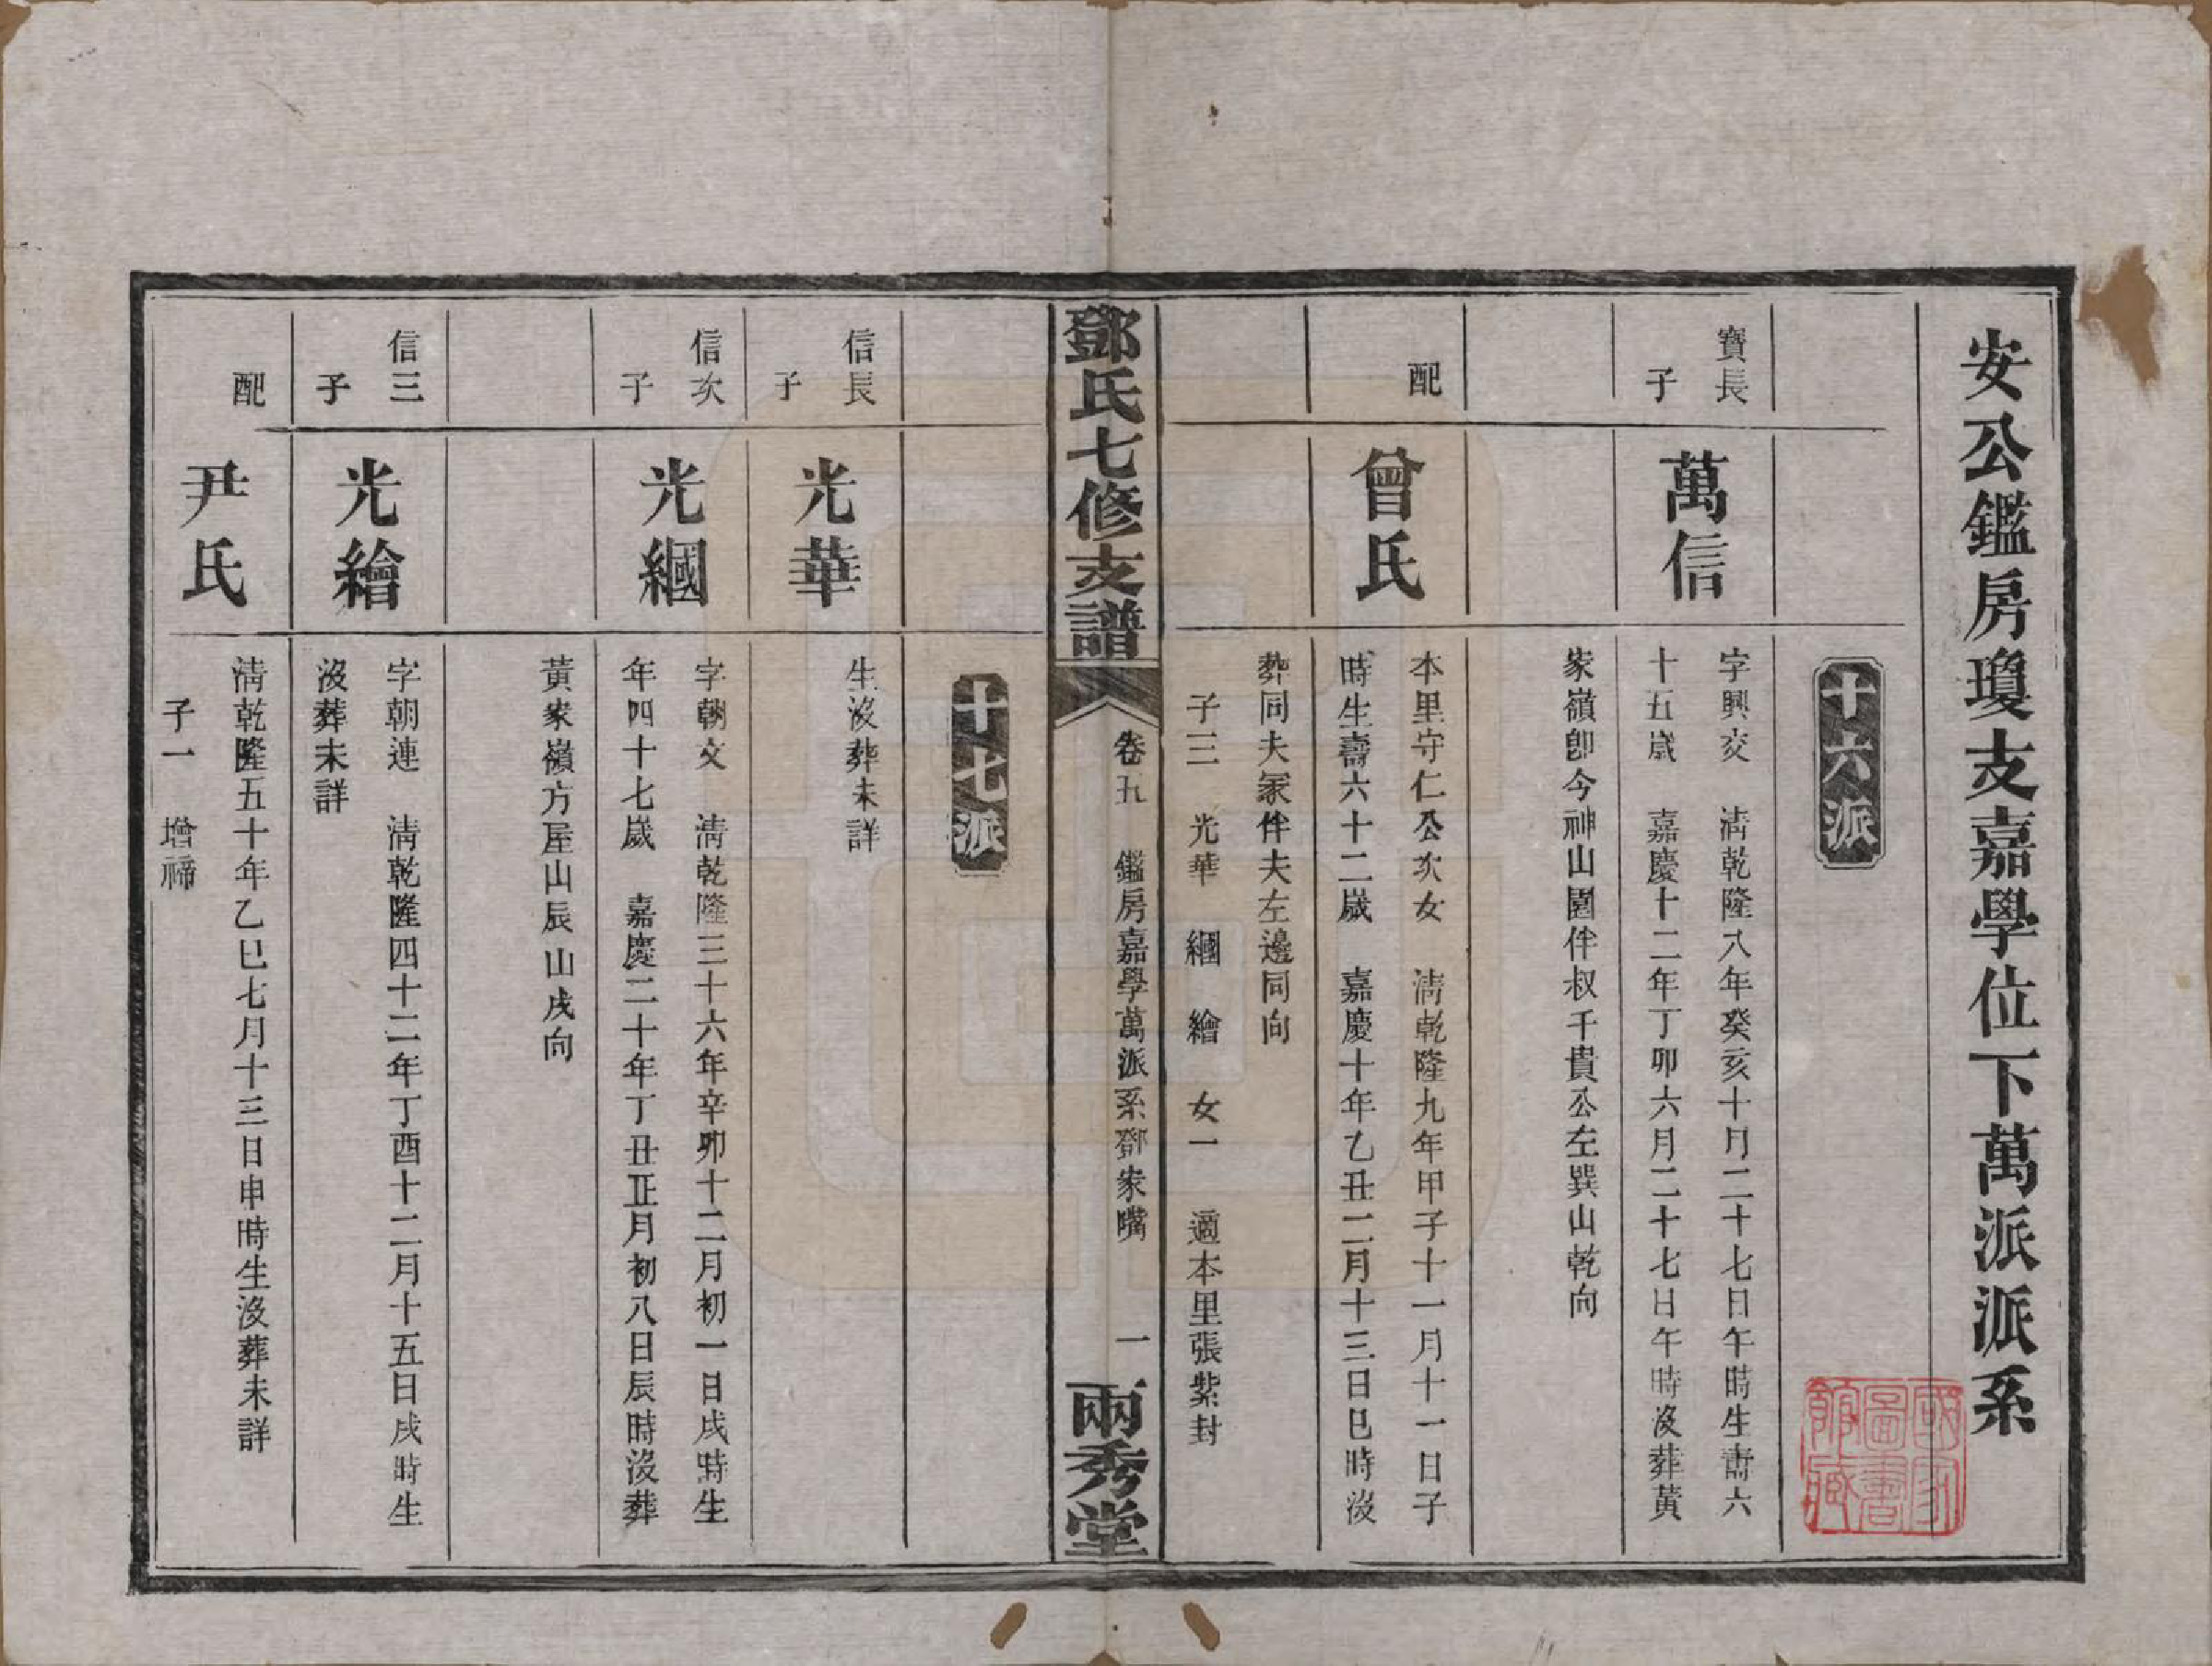 安公鑑房瓊支嘉學位下萬派派系
十六派
寶長子
萬信
字興交　清乾隆八年癸亥十月二十七日午時生壽六
十五歲　嘉慶十二年丁卯六月二十七日午時沒葬黃
家嶺卽今神山園伴叔千貴公左巽山乾向
配
曾氏
本里守仁公次女　清乾隆九年甲子十一月十一日子
時生壽六十二歲　嘉慶十年乙丑二月十三日巳時沒
葬同夫冢伴夫左邊同向
子三　光華　繝　繪　女一　適本里張紫封
鄧氏七修支譜
卷五　鑑房嘉學萬派系鄧家嘴　一
兩秀堂
十七派
信長子
光華
生沒葬未詳
信次子
光繝
字朝文　清乾隆三十六年辛卯十二月初一日戌時生
年四十七歲　嘉慶二十年丁丑正月初八日辰時沒葬
黃家嶺方屋山辰山戌向
信三子
光繪
字朝連　清乾隆四十二年丁酉十二月十五日戌時生
沒葬未詳
配
尹氏
清乾隆五十年乙巳七月十三日申時生沒葬未詳
子一　增禘
國家圖書館藏